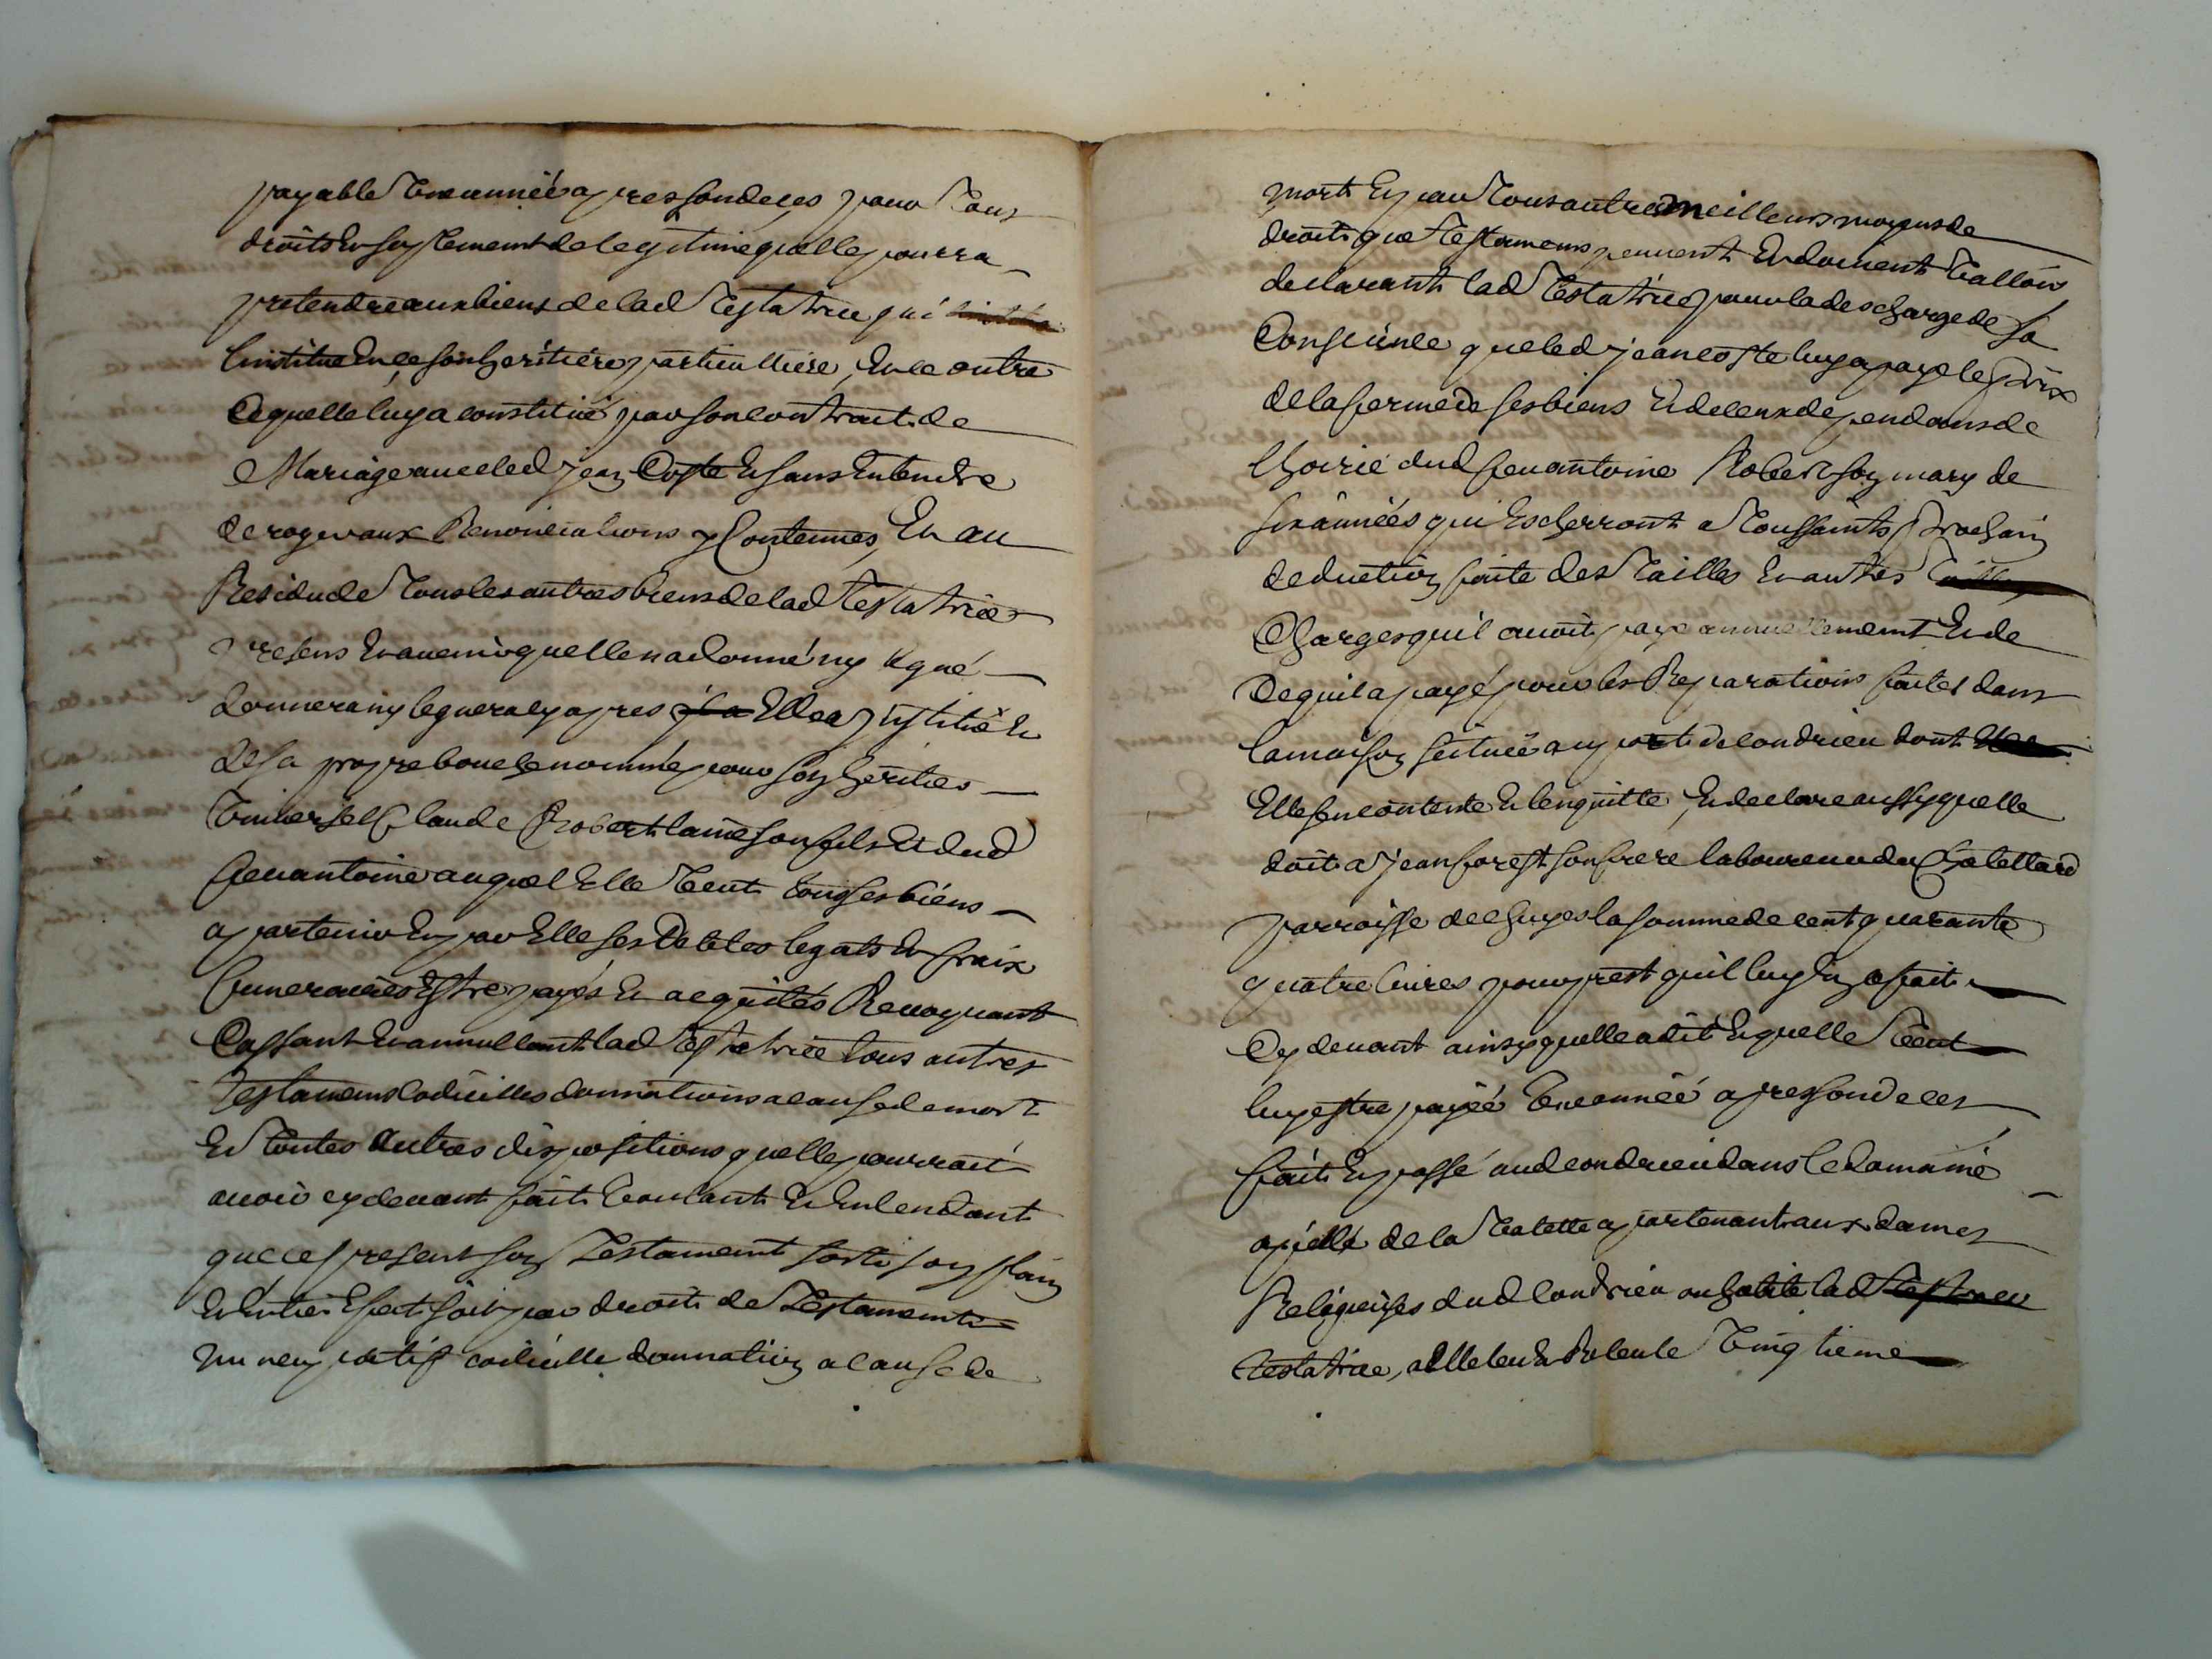 payable une année apres son deces pour tous
droits et suplement de legitime quelle pourra
pretendre aux biens de lad testatrice qui
linstitue en ce son heritiere particulliere, En ce outre
ce quelle luy a constitué par son contrait de
Mariage avec led jean Coste et sans entendre
deroger aux Renonciations y contenues, Et au
Residu de tous les autres biens de lad testatrice
presens et avenir quelle na donné ny legué
donnera ny leguera cy apres Elle a institué et
de sa propre bouche nommé pour son heritier
universel Claude Robert laine son fils et dud
feu antoine auquel Elle veut tous ses biens
apartenir et par Elle ses debtes legats et fraix
funeraires Estre payés et acquités Revoquant
Cassant et annullant lad testatrice tous autres
testamens codicilles donnations a cause de mort
et toutes autres dispositions quelle pourrait
avoir cy devant fait voulant et entendant
que ce present son testament sorte son plain
et entier Effect soit par droit de testament
nuncupatif codicille donnation a cause de
mort et par tous autres meilleurs moyens de
droit que testamens peuvent et doivent valloir
declarant lad testatrice pour la descharge de sa
Conscience que led jean coste luy a payé le prix
de la ferme de ses biens et de ceux dependans de
lhoirie dud feu antoine Robert son mary de
six années qui escherront a toussaints prochain
deduction faite des tailles et autres
Charges quil avoit payé annuellement et de
Ce quil a payé pour les Reparations faites dans
la maison scituée au port de condrieu dont
Elle sen contente et len quitte, et declare aussy quelle
doit a jean forest son frere laboureur du Chatellard
parroisse de chuyes la somme de cent quarante
quatre livres pour prest quil luy en a fait
Cy devant ainsy quelle a dit et quelle veut
luy estre payée une année apres son deces
fait et passé aud condrieu dans le domaine
apellé de la apartenant aux dames
Religieuses dud Condrieu ou habite lad
testatrice, a Elle leu et Releu le vingtieme